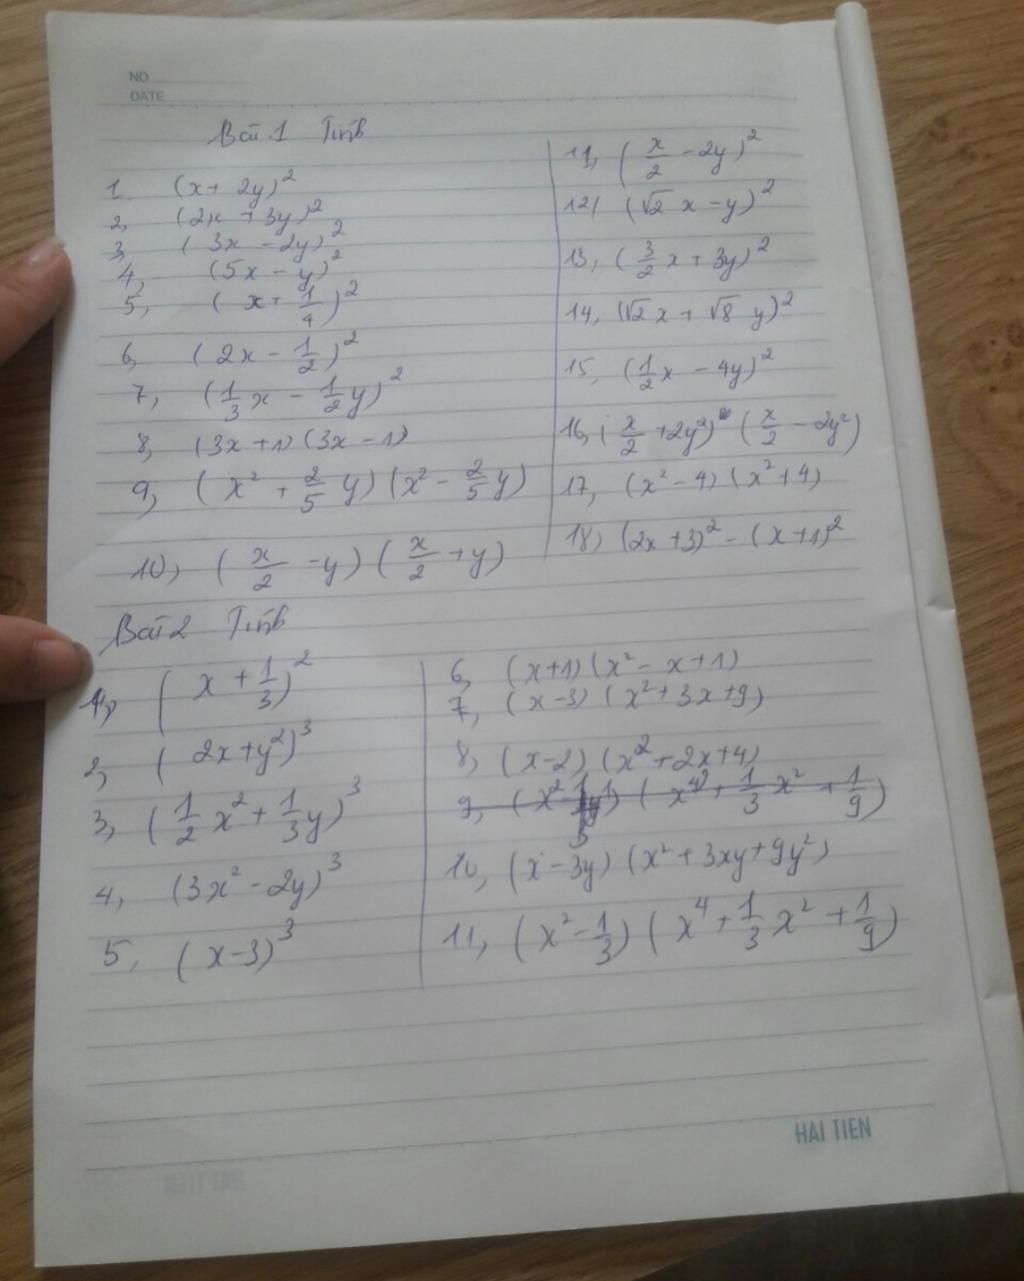 NO
DATE
Bài 1 Tính
1. (x + 2y)²
2, (2x + 3y)²
3, (3x - 2y)²
4, (5x - y)²
5, (x + 1/4)²
6, (2x - 1/2)²
7, (1/3 x - 1/2 y)²
8, (3x + 1)(3x - 1)
9, (x² + 2/5 y)(x² - 2/5 y)
10, (x/2 - y)(x/2 + y)
11, (x/2 - 2y)²
12, (√2 x - y)²
13, (3/2 x + 3y)²
14, (√2 x + √8 y)²
15, (1/2 x - 4y)²
16, (x/2 + 2y²)(x/2 - 2y²)
17, (x² - 4)(x² + 4)
18, (2x + 3)² - (x + 1)²
Bài 2 Tính
1, (x + 1/3)²
2, (2x + y²)³
3, (1/2 x² + 1/3 y)³
4, (3x² - 2y)³
5, (x - 3)³
6, (x + 1)(x² - x + 1)
7, (x - 3)(x² + 3x + 9)
8, (x - 2)(x² + 2x + 4)
10, (x - 3y)(x² + 3xy + 9y²)
11, (x² - 1/3)(x⁴ + 1/3 x² + 1/9)
HAI TIEN